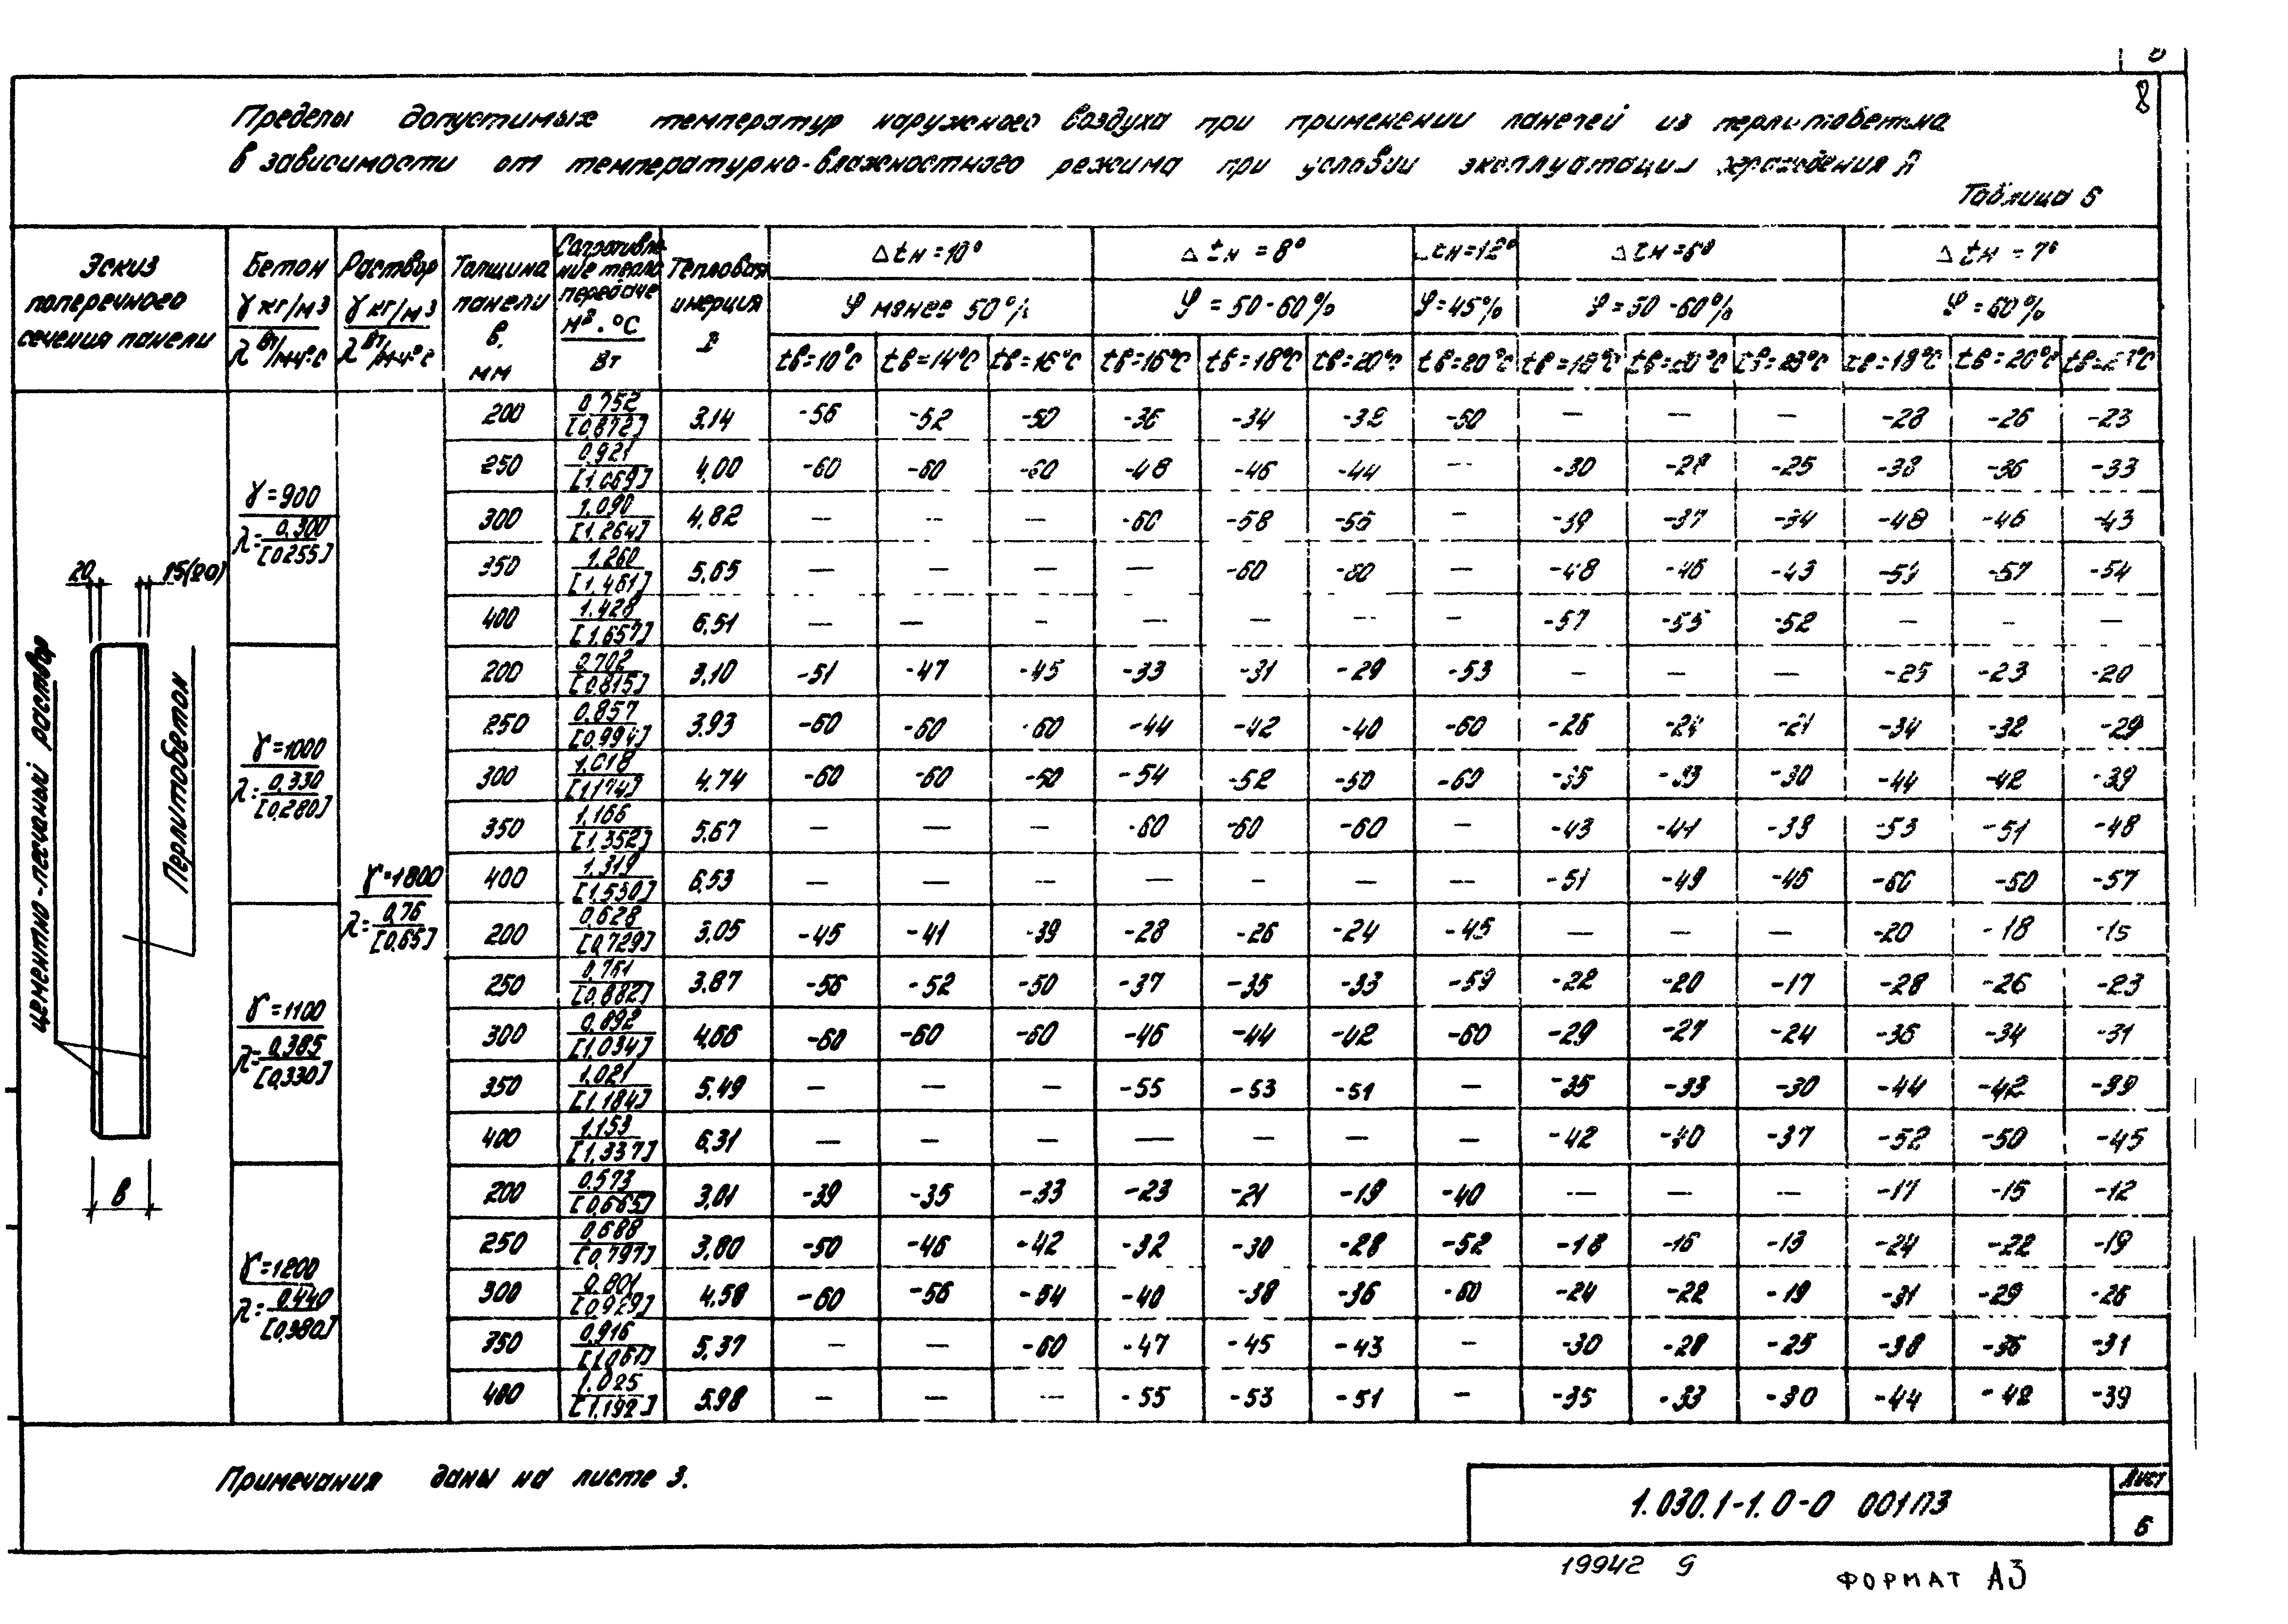 8
Пределы допустимых температур наружного воздуха при применении панелей из перлитобетона
в зависимости от температурно-влажностного режима при условии эксплуатации ограждения А
Таблица 5
Эскиз поперечного сечения панели
Бетон γ кг/м3 λ Вт/м·ч°С
Раствор γ кг/м3 λ Вт/м·ч°С
Толщина панели в, мм
Сопротивление теплопередаче м²·°С Вт
Тепловая инерция
Δtн=10° Δtн=8° tн=12° Δtн=7°
φ менее 50% φ=50-60% φ=45% φ=50-60% φ=60%
tв=10°С tв=14°С tв=16°С tв=16°С tв=18°С tв=20°С tв=20°С tв=18°С tв=20°С tв=23°С tв=19°С tв=20°С
20 15(20)
цементно-песчаный раствор
Перлитобетон
в
γ=1800 λ=0,76 [0,65]
γ=900 λ=0,300 [0,255]
200 0,752 [0,872] 3,14 -56 -52 -50 -36 -34 -32 -50 — — — -28 -26 -23
250 0,921 [1,069] 4,00 -60 -60 -60 -48 -46 -44 — -30 -28 -25 -38 -36 -33
300 1,090 [1,264] 4,82 — — — -60 -58 -56 — -39 -37 -34 -48 -46 -43
350 1,260 [1,461] 5,65 — — — — -60 -60 — -48 -46 -43 -57 -54
400 1,428 [1,657] 6,51 — — — — — — — -57 -55 -52 — — —
γ=1000 λ=0,330 [0,280]
200 0,702 [0,815] 3,10 -51 -47 -45 -33 -31 -29 -53 — — — -25 -23 -20
250 0,857 [0,994] 3,93 -60 -60 -60 -44 -42 -40 -60 -26 -24 -21 -34 -32 -29
300 1,018 [1,174] 4,74 -60 -60 -60 -54 -52 -50 -60 -35 -33 -30 -44 -42 -39
350 1,166 [1,352] 5,67 — — — -60 -60 -60 — -43 -41 -38 -53 -51 -48
400 1,319 [1,530] 6,53 — — — — — — — -51 -49 -46 -60 -50 -57
γ=1100 λ=0,385 [0,330]
200 0,628 [0,729] 3,05 -45 -41 -39 -28 -26 -24 -45 — — — -20 -18 -15
250 0,761 [0,882] 3,87 -56 -52 -50 -37 -35 -33 -59 -22 -20 -17 -28 -26 -23
300 0,892 [1,034] 4,66 -60 -60 -60 -46 -44 -42 -60 -29 -27 -24 -36 -34 -31
350 1,021 [1,184] 5,49 — — — -55 -53 -51 — -35 -33 -30 -44 -42 -39
400 1,153 [1,337] 6,31 — — — — — — — -42 -40 -37 -52 -50 -45
γ=1200 λ=0,440 [0,380]
200 0,573 [0,665] 3,01 -39 -35 -33 -23 -21 -19 -40 — — — -17 -15 -12
250 0,688 [0,797] 3,80 -50 -46 -42 -32 -30 -28 -52 -18 -16 -13 -24 -22 -19
300 0,801 [0,929] 4,58 -60 -56 -54 -40 -38 -36 -60 -24 -22 -19 -31 -29 -26
350 0,916 [1,061] 5,37 — — -60 -47 -45 -43 — -30 -28 -25 -38 -36 -31
400 1,025 [1,192] 5,98 — — — -55 -53 -51 — -35 -33 -30 -44 -42 -39
Примечания даны на листе 3.
1.030.1-1.0-0 001ПЗ
Лист
5
19942 9
ФОРМАТ А3